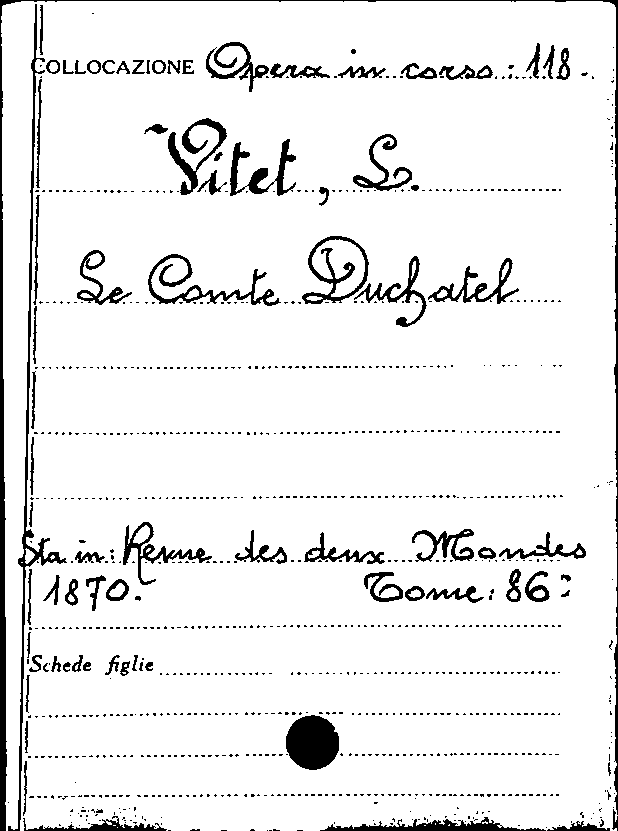 COLLOCAZIONE Opera in corso: 118.
Vitet, L.
Le Comte Duchatel
Sta in: Revue des deux Mondes
1870. Tome: 86:
Schede figlie